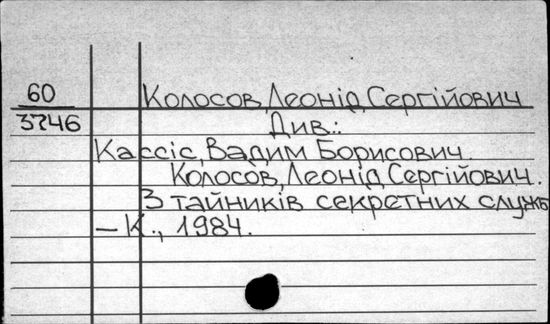 60
3746
Колосов, Леонід Сергійович
Див.:
Кассіс, Вадим Борисович
Колосов, Леонід Сергійович.
З тайників секретних служб
– К., 1984.